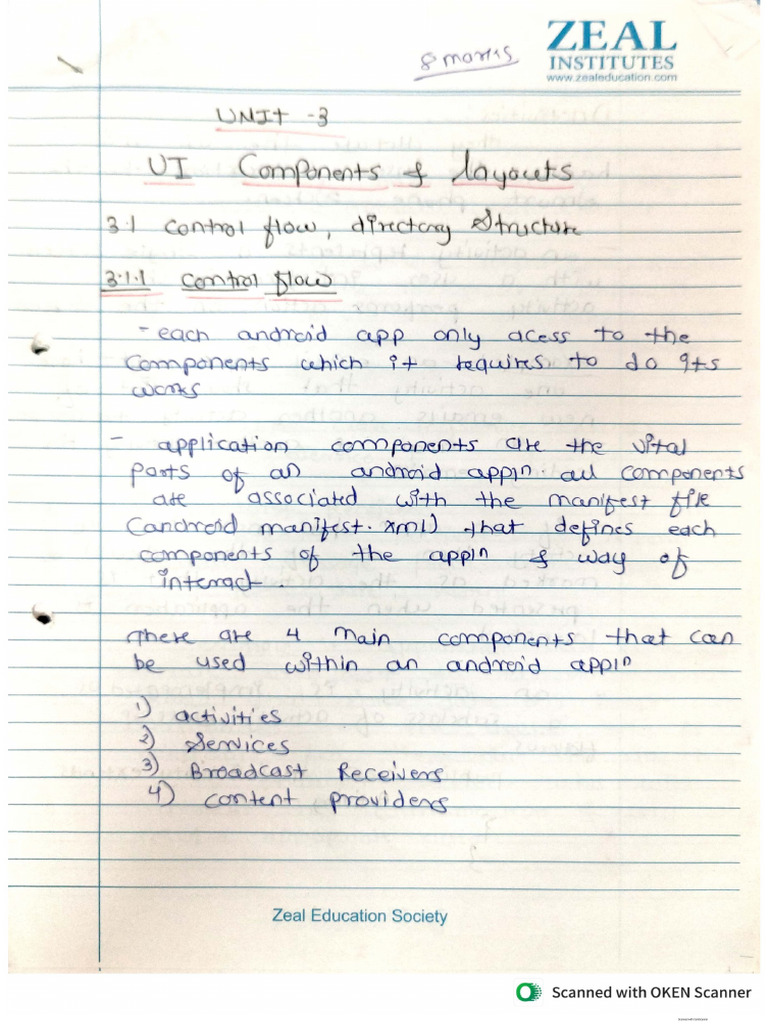 8 marks
ZEAL
INSTITUTES
www.zealeducation.com
UNIT -3
UI Components & layouts
3.1 control flow, directory Structure
3.1.1 control flow
- each android app only acess to the
components which it requires to do its
works
- application components are the vital
parts of an android appln. all components
are associated with the manifest file
(android manifest.xml) that defines each
components of the appln & way of
interact.
There are 4 main components that can
be used within an android appln
1) activities
2) Services
3) Broadcast Receivers
4) content providers
Zeal Education Society
Scanned with OKEN Scanner